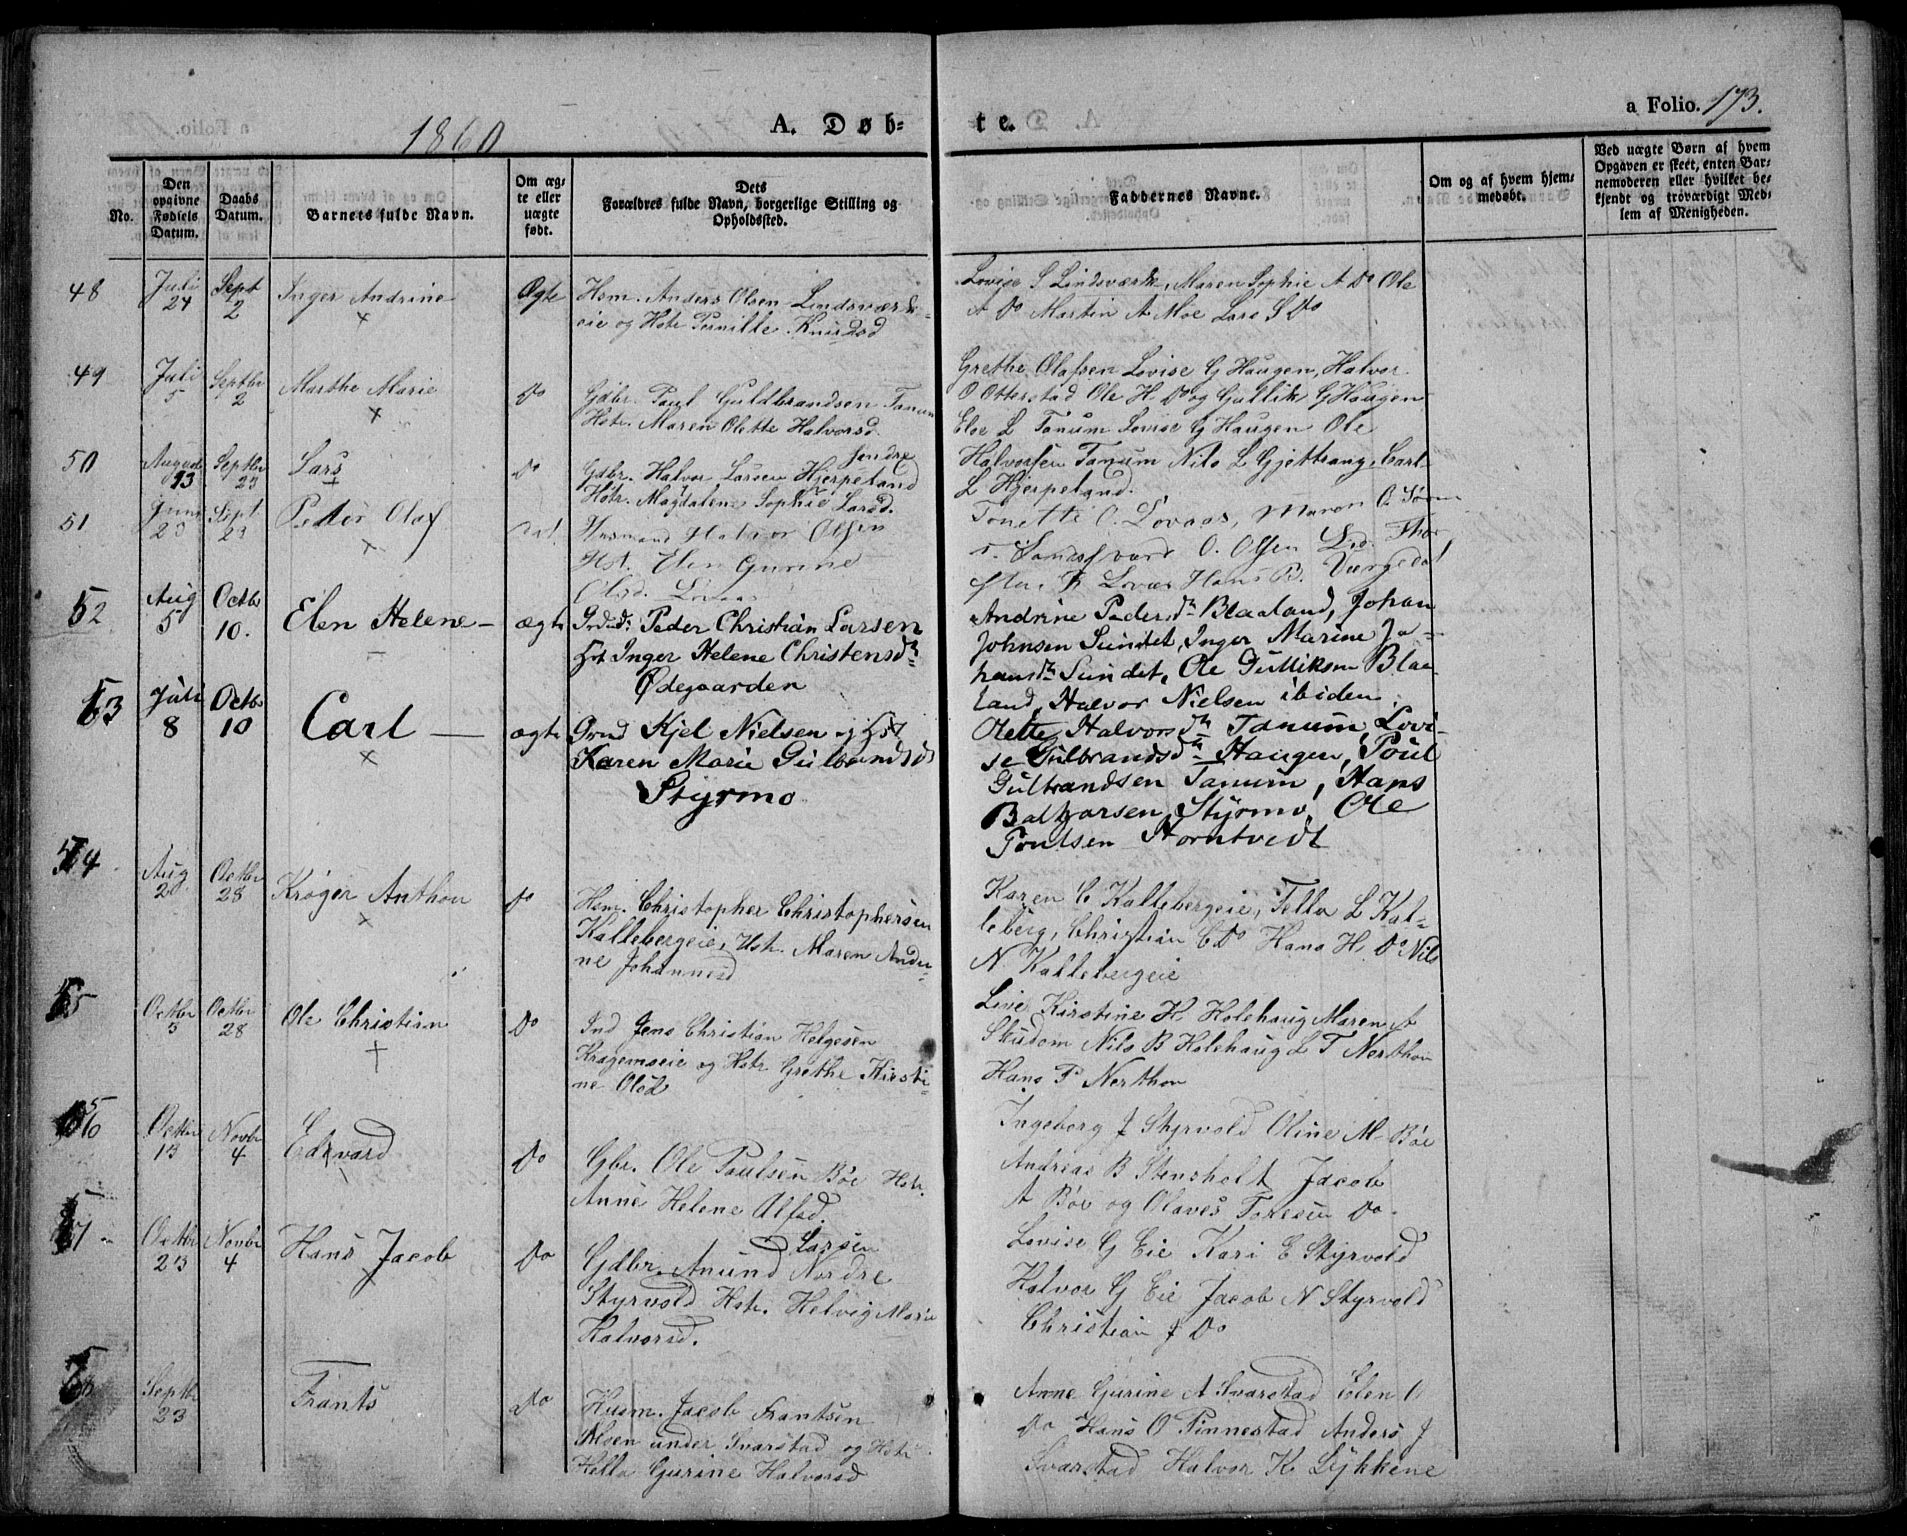 1860
A. Døb-
te.
a Folio. 173.
No.
Den opgivne Fødsels Datum.
Daabs Datum.
Barnets fulde Navn.
Om ægte eller uægte født.
Dets Forældres fulde Navn, borgerlige Stilling og Opholdssted.
Faddernes Navne.
Om og af hvem hjemmedøbt.
Ved uægte Børn af hvem Opgaven er skeet, enten Barnemoderen eller hvilket bekjendt og troværdigt Medlem af Menigheden.
48
Juli 24
Sept 2
Inger Andrine
Ægte
Hsm. Anders Olsen Lindsværk-
eie og Hstr Pernille Knudsd
Lovise S Lindsværk, Maren Sophie A Do Ole
A Do Martin A Moe Lars S Do
49
Juli 5
Septbr 2
Marthe Marie
Do
Gdbr. Paul Guldbrandsen Tanum
Hstr. Maren Olette Halvorsd.
Grethe Olafsen Lovise G Haugen, Halvor
O Otterstad Ole H. Do og Gullik G Haugen
50
August 13
Septbr 23
Lars
Do
Gdbr. Halvor Larsen Hjerpeland søndre
Hstr. Magdalene Sophie Larsd.
Else L Tanum Lovise G Haugen Ole
Halvorsen Tanum Nils L Gjettrang, Carl
L Hjerpeland.
51
Juni 23
Sept 23
Peder Olaf
Husmand Halvor Olsen
Hst. Elen Gurine
Olsd. Lovaas
Tonette O. Lovaas, Maren
O. Olsen
Lovaas Hans B. Vergedal
52
Aug 5
Octbr 10.
Elen Helene
ægte
Grdd: Peder Christian Larsen
Hst Inger Helene Christensdtr
Ødegaarden
Andrine Pedersdtr Blaaland, Johan
Johnsen Sundet, Inger Marine Jo-
hansdtr Sundet, Ole Gulliksen Blaa-
land, Halvor Nielsen ibiden
53
Juli 8
Octbr 10
Carl
ægte
Grnd Kjel Nielsen og Hst
Karen Marie Gulbrandsd
Styrmo
Olette Halvorsdtr Tanum, Lovi-
se Gulbrandsdtr Haugen, Poul
Gulbrandsen Tanum, Hans
Baltzarsen Styrmo, Ole
Poulsen Horntvedt
54
Aug 2
Octbr 28
Krøger Anthon
Do
Hsm. Christopher Christophersen
Kallebergeie, Hstr. Maren Andri-
ne Johannesd
Karen C Kallebergeie, Tella L Kal-
leberg, Christian C Do Hans H. Do Nils
N Kallebergeie
55
Octbr 3
Octbr 28
Ole Christian
Do
Ind Jens Christian Helgesen
Kragemoeie og Hstr Grethe Kirsti-
ne Olsd
Line Kirstine H Holehaug Maren A
Skudom Nils B Holehaug L T Nerthon
Hans P Nerthon
56
Octbr 13
Novbr 4
Edvard
Do
Gbr. Ole Paulsen Bøe Hstr.
Anne Helene Alfsd.
Ingeborg J Styrvold Oline M Bøe
Andreas B Stensholt Jacob
A Bøe og Olaves Toresen Do
57
Octbr 23
Novbr 4
Hans Jacob
Do
Gdbr. Anund Larsen Nordre
Styrvold Hstr. Helvig Marie
Halvorsd.
Lovise G Eie Kari E Styrvold
Halvor G Eie Jacob N Styrvold
Christian J Do
Septbr 23
Frants
Do
Husm. Jacob Frantsen
under Svarstad og Hstr
Hella Gurine Halvorsd
Anne Gurine A Svarstad Elen O
Do Hans O Pinnestad Anders J
Svarstad Halvor K Lykkene